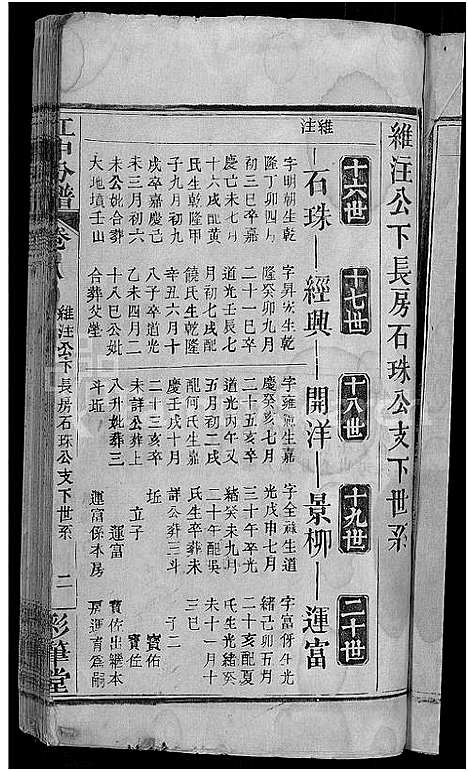 維注公下長房石珠公支下世系
十六世
十七世
十八世
十九世
二十世
維注
石珠
經興
開洋
景柳
運富
字明朝生乾
隆丁卯四月
初三巳卒嘉
慶己未七月
十六戌配黃
氏生乾隆甲
子九月初九
戌卒嘉慶己
未三月初六
未公妣合葬
大地墳壬山
字昇安生乾
隆癸卯九月
二十一巳卒
道光壬辰七
月初七戌配
饒氏生乾隆
辛丑六月十
八子卒道光
乙未四月二
十八巳公妣
合葬交塋
生嘉
慶癸亥七月
二十五亥卒
道光丙午又
五月初二戌
配何氏生嘉
慶壬戌十月
二十三亥卒
未詳公葬上
八升妣葬三
斗坵
生道
光戊申七月
三十午卒光
緒癸未九月
二十午配吳
氏生卒葬未
詳公葬三斗
坵
立子
運富
運富係本房
字富仔生光
緒己卯五月
二十亥配夏
氏生光緒癸
未十一月十
三巳
子二
寶佑
寶侹
寶佑出繼本
房運育為嗣
江中分譜
卷八
維注公下長房石珠公支下世系
二
彩筆堂